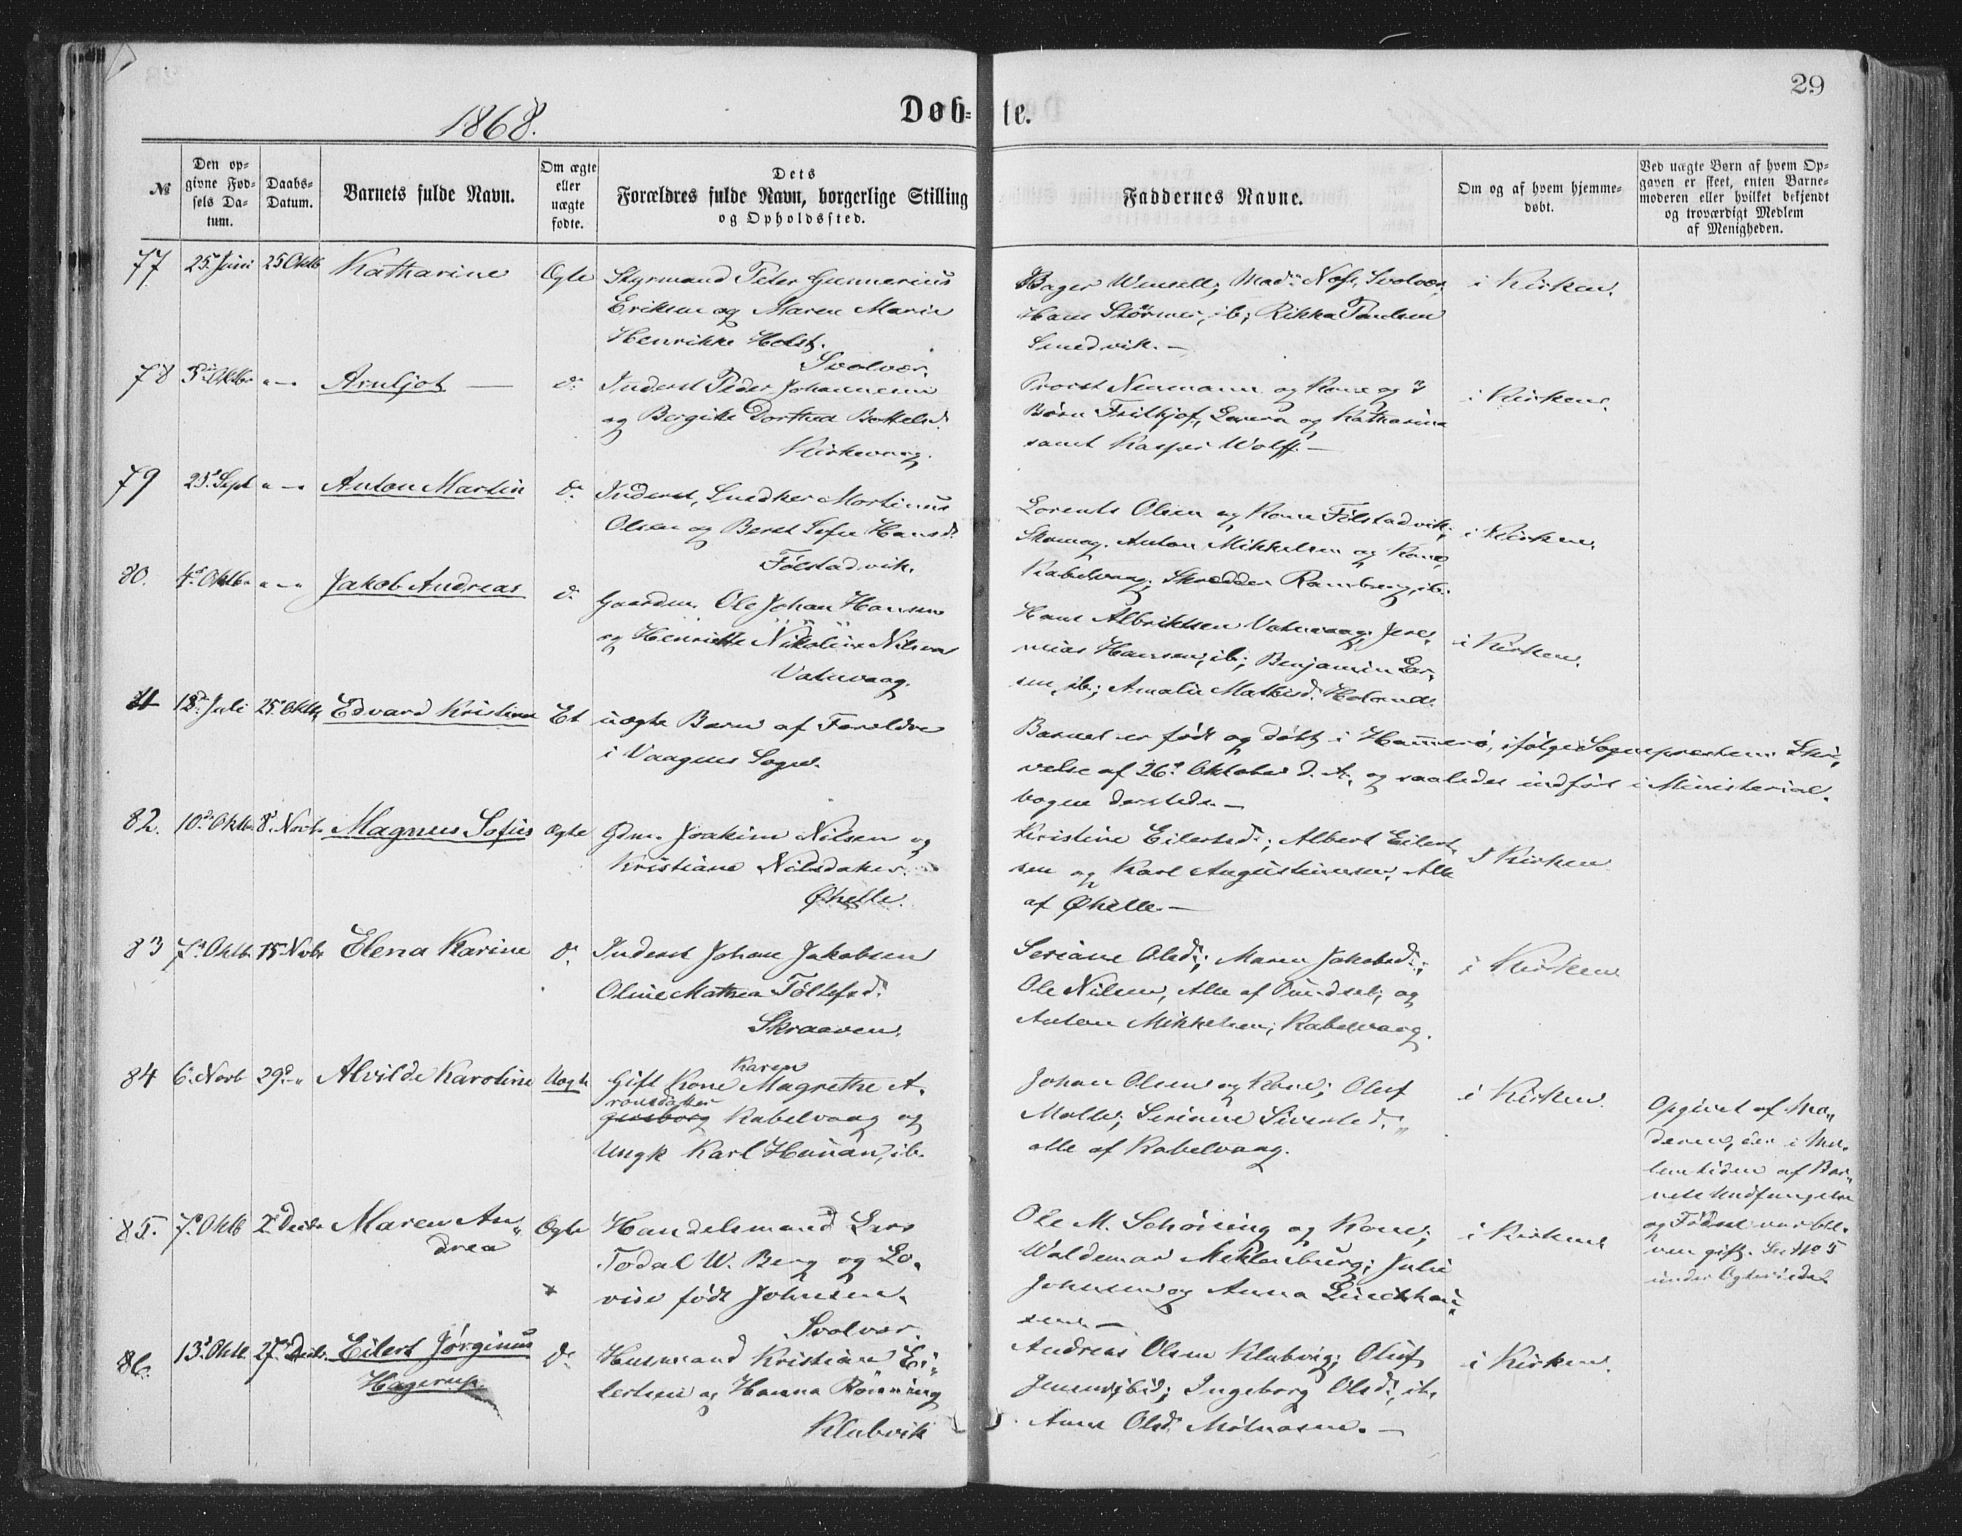 29
1868.
Døb= te.
№
Den op-
givne Fød-
sels Da-
tum.
Daabs-
Datum.
Barnets fulde Navn.
Om ægte
eller
uægte
fødte.
Dets
Forældres fulde Navn, borgerlige Stilling
og Opholdssted.
Faddernes Navne.
Om og af hvem hjemme-
døbt.
Ved uægte Børn af hvem Op-
gaven er skeet, enten Barne-
moderen eller hvilket bekjendt
og troværdigt Medlem
af Menigheden.
77 25. Juni 25 Oktb Katharine Ægte Styrmand Peter Gunnerius
Eriksen og Maren Marie
Henrikke Holst.
Svolvær.
Bager Wensell; Mad. Svolvær,
Hans Størmer, ib; Rikka Paulsen
Smedvik.—
i Kirken.
78 5. Oktbr "—" Arnljot — do. Inderst Peder Johannesen
og Bergitte Dorthea Bottelsd.
Kirkevaag.
Provst Neumann og Kone og 3
Børn Frithjof, Laura og Katharina
samt Kasper Wolff.—
i Kirken.
79 25. Sept "—" Anton Martin do. Inderst, Snedker Martinus
Olsen og Beret Sofie Hansd.
Følstadvik.
Lorents Olsen og Kone Følstadvik;
Skomag. Anton Mikkelsen og Kone,
Kabelvaag; Skrædder Ramberg, ib.
i Kirken.
80. 4. Oktbr "—" Jakob Andreas do. Gaardm. Ole Johan Hansen
og Henriette Nikoline Nilsen
Vatnvaag.
Hans Albriktsen Vatnvaag; Jere-
mias Hansen, ib; Benjamin Lar-
sen, ib; Amalie Mathisd. Holand.
i Kirken.
18. Juli 25. Oktb, Edvard Kristian Et uægte Barn af Forældre
i Vaagens Sogn.
Barnet er født og døbt i Hammerø, ifølge Sognepræstens Skri-
velse af 26. Oktober d. A. og saaledes indført i Ministerial-
bogen dersteds.—
82. 10. Oktb 8. Novb. Magnus Sofus Ægte Gdm. Joakim Nilsen og
Kristiane Nilsdatter.
Øhelle.
Kristine Eilertsd.; Albert Eilert-
sen og Karl Augustinusen, Alle
af Øhelle.—
I Kirken
83 7. Oktb. 15. Nvbr Elena Karine do. Inderst Johan Jakobsen
Oline Mathea Tøllefsd.
Skraaven.
Seriane Olsd.; Maren Jakobsd.;
Ole Nilsen, Alle af og
Anton Mikkelsen, Kabelvaag.
i Kirken
84 6. Novb 29. " Alvilde Karoline Uægte Gift Kone Karen Magrethe A-
ronsdatter Kabelvaag og
Ungk Karl Hunan, ib.
Johan Olsen og Kone; Oluf
Molle; Seriane Siversd.,
alle af Kabelvaag.
i Kirken.
Opgivet af Mo-
deren, der i Mel-
lemtiden af Bar-
nets Undfangelse
og Fødsel var ble-
ven gift. See No 5
under Ægteviede.
85. 7. Oktb 2. Decbr Maren An-
drea
Ægte Handelsmand Lars
Todal W. Berg og Lo-
vise født Johnsen.
Svolvær.
Ole M. Schøning og Kone;
Waldemar Meklenburg; Julie
Johnsen og Anna
i Kirken
86. 13. Oktb. 27. Decbr. Eilert Jørginus
Hagerup.
do. Husmand Kristian Ei-
lertsen og Hanna Rønning
Klubvik
Andreas Olsen Klubvig; Oluf
Jensen, ibid; Ingeborg Olsd., ib.
Anne Olsd. Molnosen.—
i Kirken.